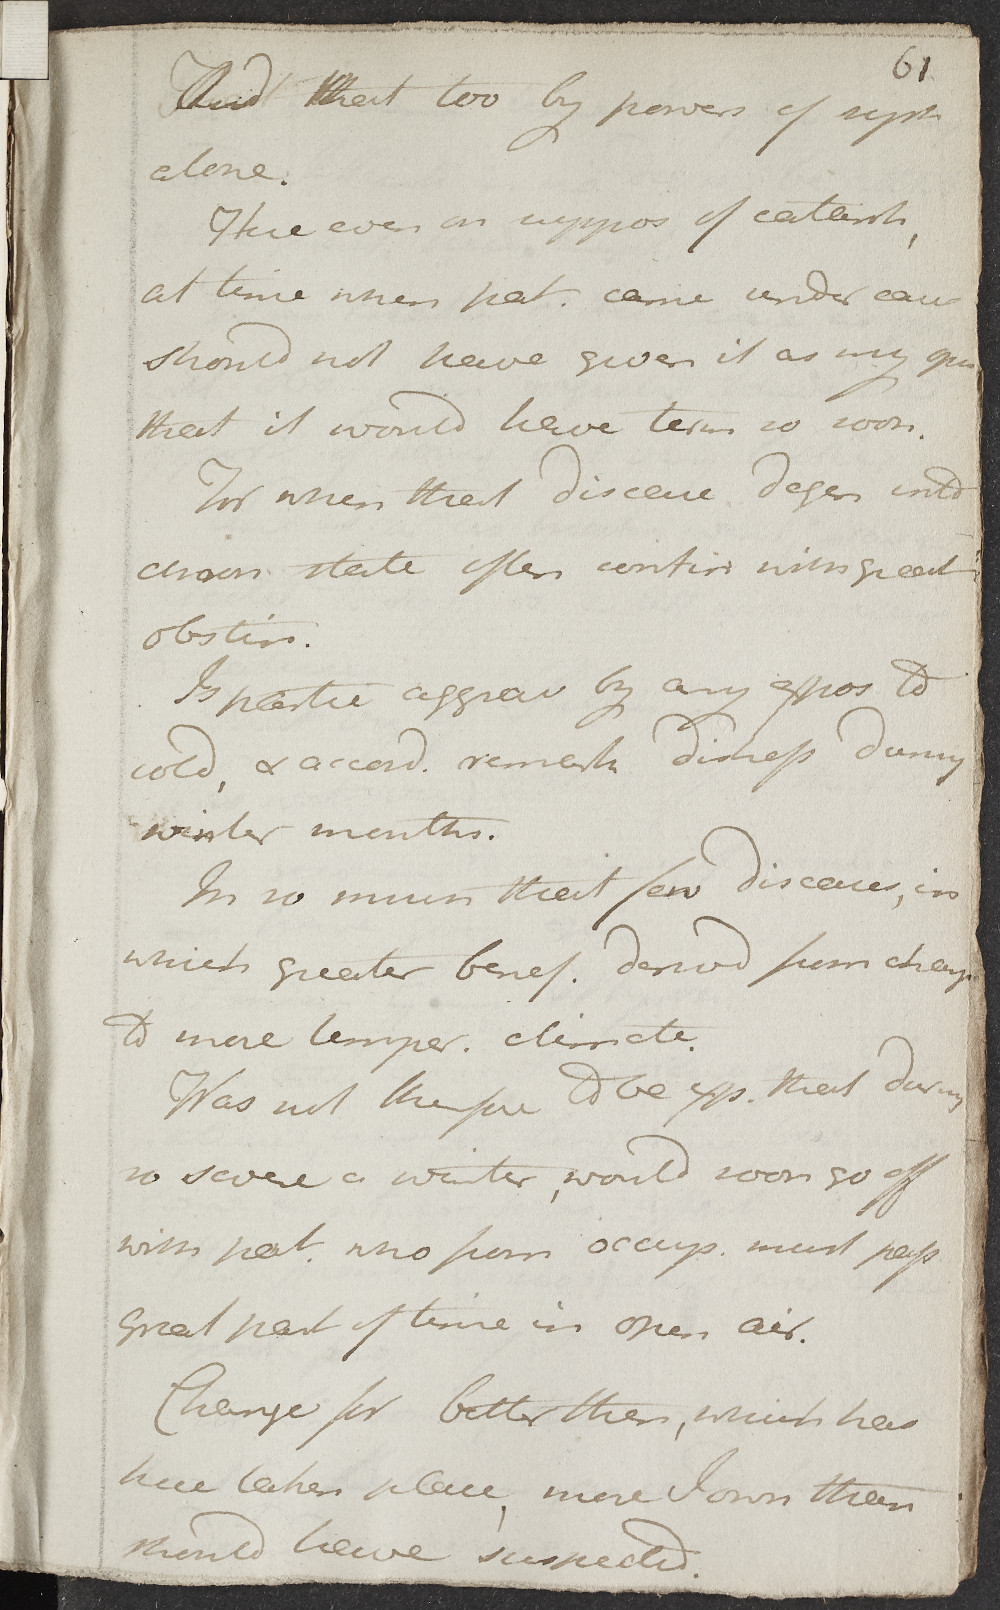 61
And that too by powers of syst
alone.
Here even on suppos of catarrh,
at time when pat. came under care
should not have given it as my opin
that it would have term so soon.
For when that disease degen into
chron state often contin with great
obstin.
Is partic aggrav by any expos to
cold, & accord. remark distress during
winter months.
In so much that few diseases, in
which greater benef. derived from change
to more temper. climate.
Was not therefore to be exp. that during
so severe a winter, would soon go off
with pat. who from occup. must pass
great part of time in open air.
Change for better then, which has
here taken place, more I own than
should have suspected.